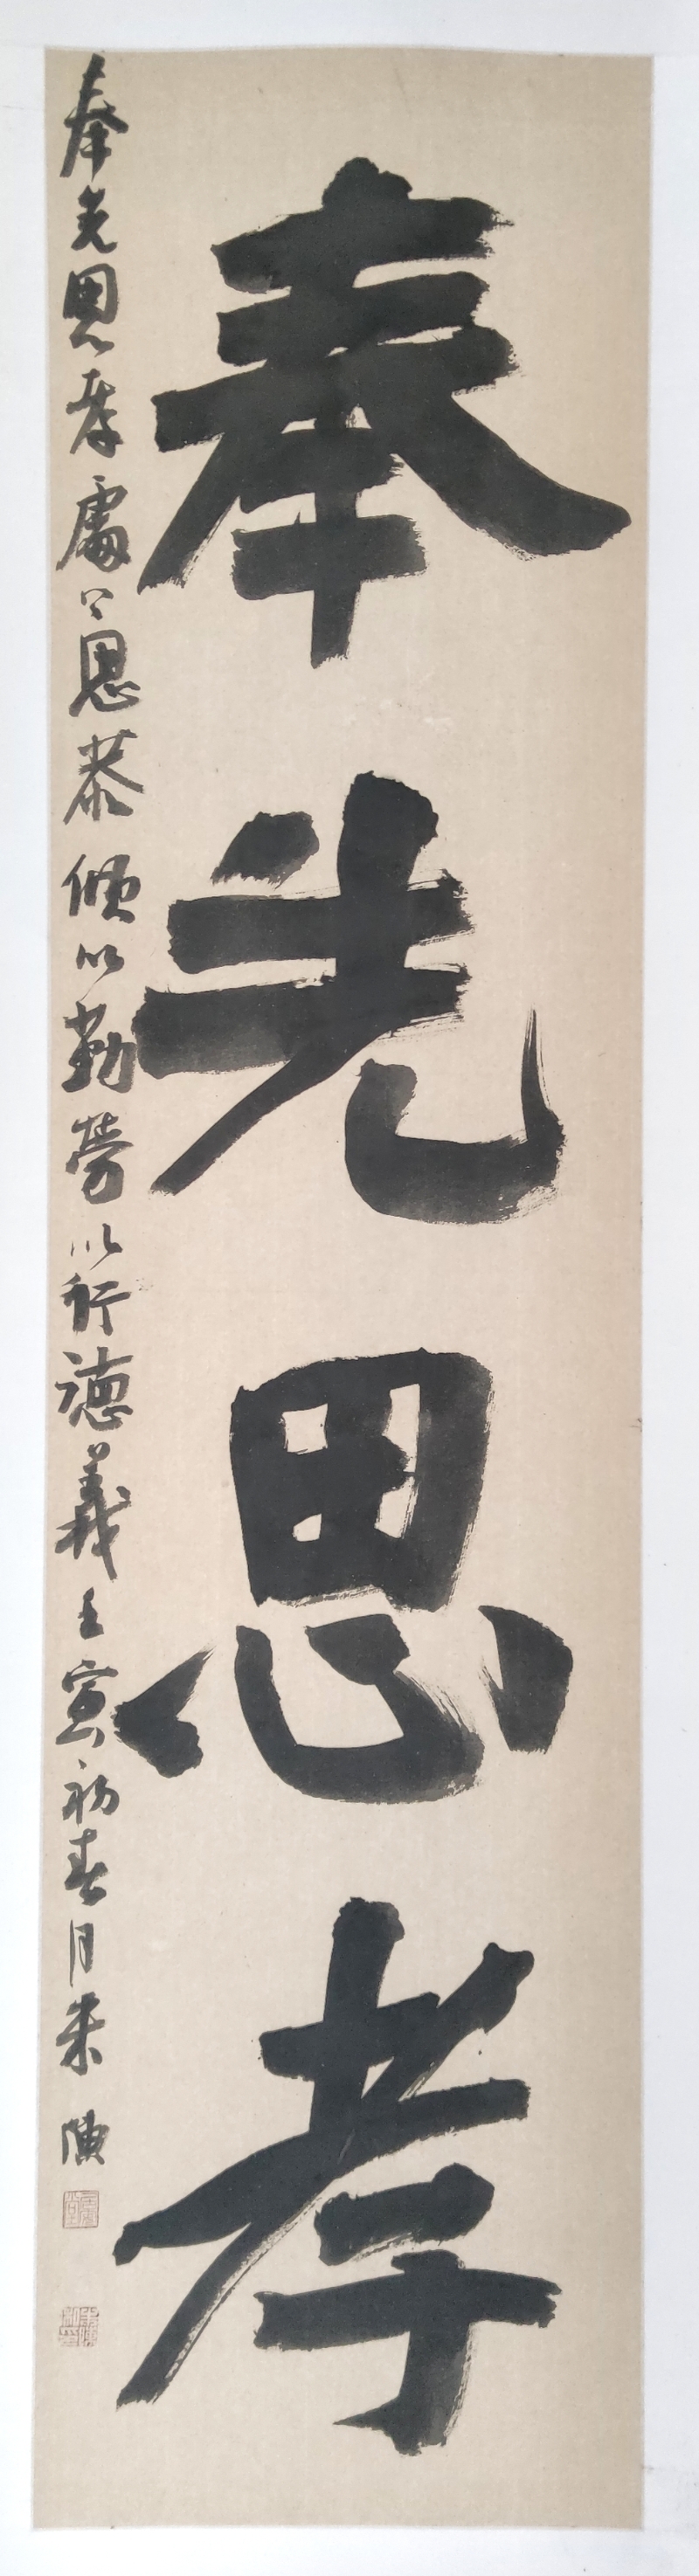 奉先思孝
奉先思孝處下思恭傾以勤勞以行德義壬寅初春月朱陳